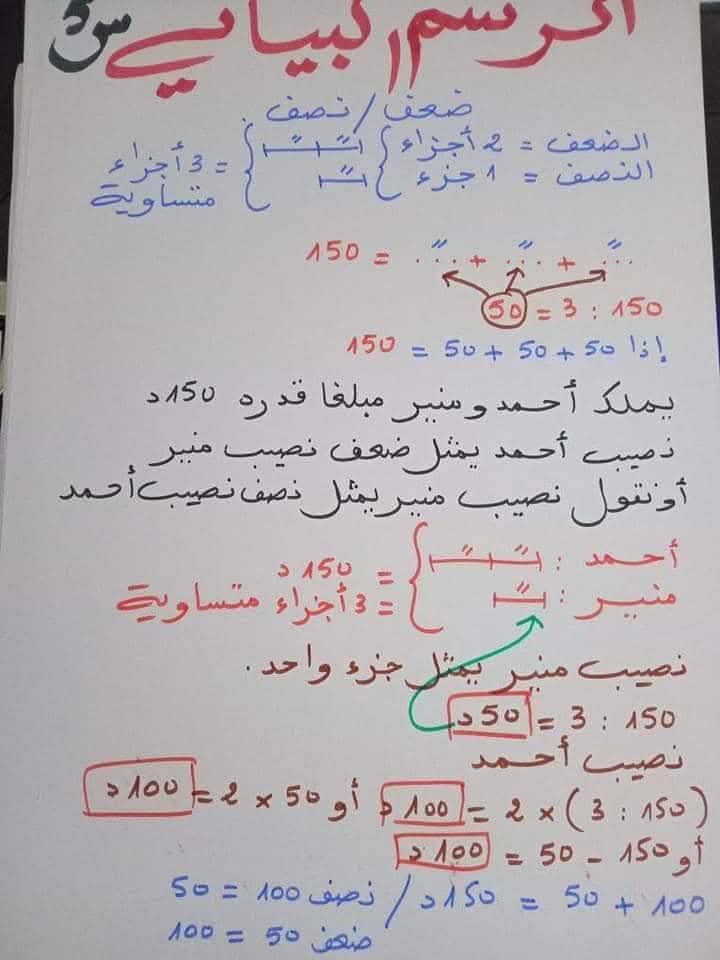 الرسم البياني س5
ضعف / نصف
الضعف = 2 أجزاء
النصف = 1 جزء
= 3 أجزاء
متساوية
150 = .... + .... + ....
50 = 3 : 150
إذا 50 + 50 + 50 = 150
يملك أحمد و منير مبلغا قدره 150د
نصيب أحمد يمثل ضعف نصيب منير
أو نقول نصيب منير يمثل نصف نصيب أحمد
أحمد :
منير :
= 150د
= 3 أجزاء متساوية
نصيب منير يمثل جزء واحد.
150 : 3 = 50د
نصيب أحمد
(150 : 3) × 2 = 100د أو 50 × 2 = 100د
أو 150 - 50 = 100د
100 + 50 = 150د / نصف 100 = 50
ضعف 50 = 100